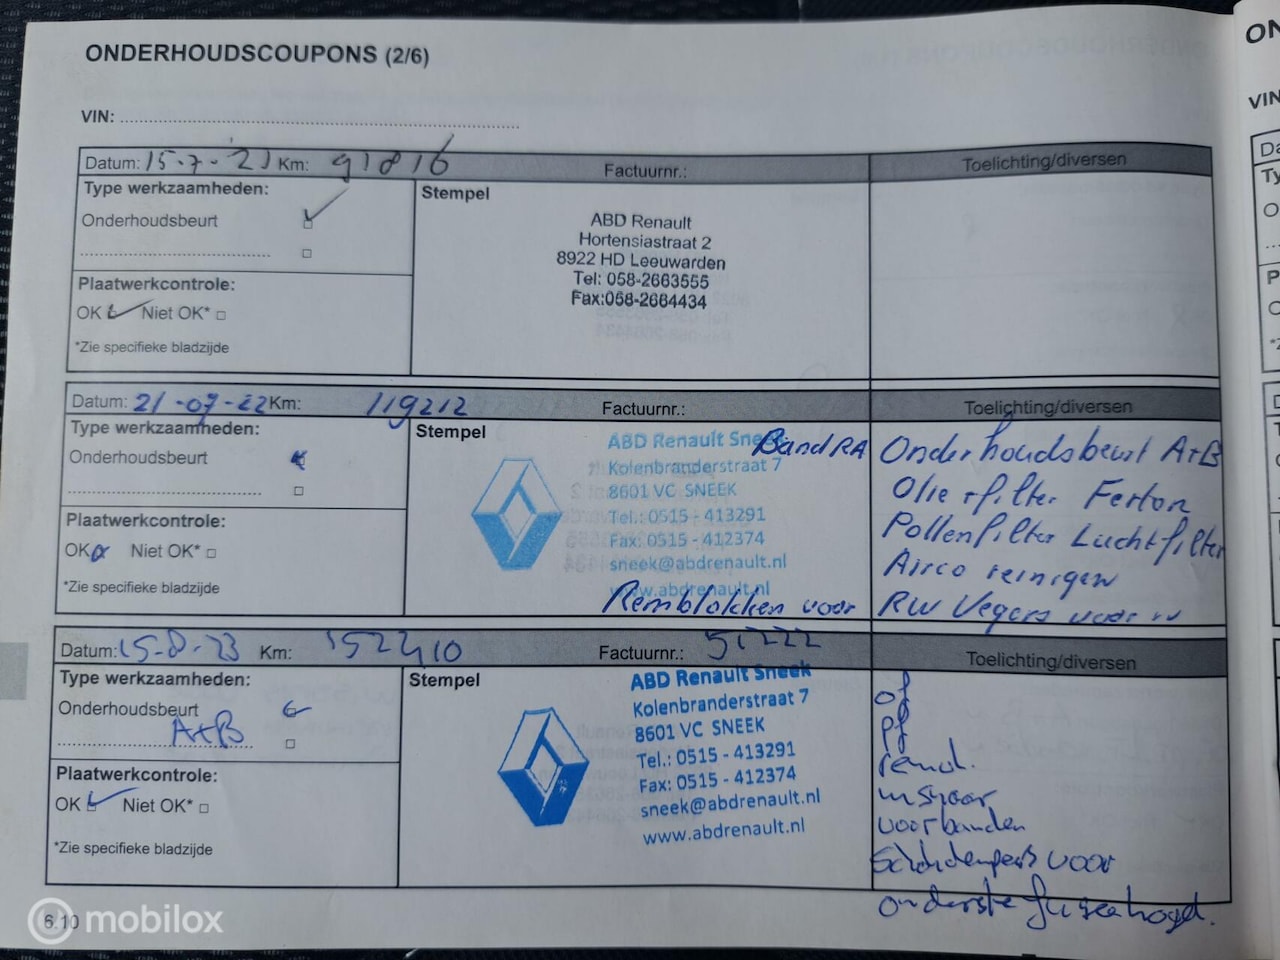 ONDERHOUDSCOUPONS (2/6)
VIN:
Datum: 15-7-'21 Km: 91816 Factuurnr.: Toelichting/diversen
Type werkzaamheden:
Onderhoudsbeurt
Stempel
ABD Renault
Hortensiastraat 2
8922 HD Leeuwarden
Tel: 058-2663555
Fax:058-2664434
Plaatwerkcontrole:
OK Niet OK*
*Zie specifieke bladzijde
Datum: 21-07-22 Km: 119212 Factuurnr.: Toelichting/diversen
Type werkzaamheden:
Onderhoudsbeurt
Stempel
ABD Renault Sneek
Kolenbranderstraat 7
8601 VC SNEEK
Tel.: 0515 - 413291
Fax: 0515 - 412374
sneek@abdrenault.nl
www.abdrenault.nl
Band RA
Remblokken voor
Onderhoudsbeurt A+B
Olie + filter
Pollenfilter Luchtfilter
Airco reinigen
RW voor
Plaatwerkcontrole:
OK Niet OK*
*Zie specifieke bladzijde
Datum: 15-8-23 Km: 152410 Factuurnr.: 51222 Toelichting/diversen
Type werkzaamheden:
Onderhoudsbeurt
A+B
Stempel
ABD Renault Sneek
Kolenbranderstraat 7
8601 VC SNEEK
Tel.: 0515 - 413291
Fax: 0515 - 412374
sneek@abdrenault.nl
www.abdrenault.nl
of
pf
voorbanden
voor
onderste
Plaatwerkcontrole:
OK Niet OK*
*Zie specifieke bladzijde
6.10
mobilox
ON
VIN